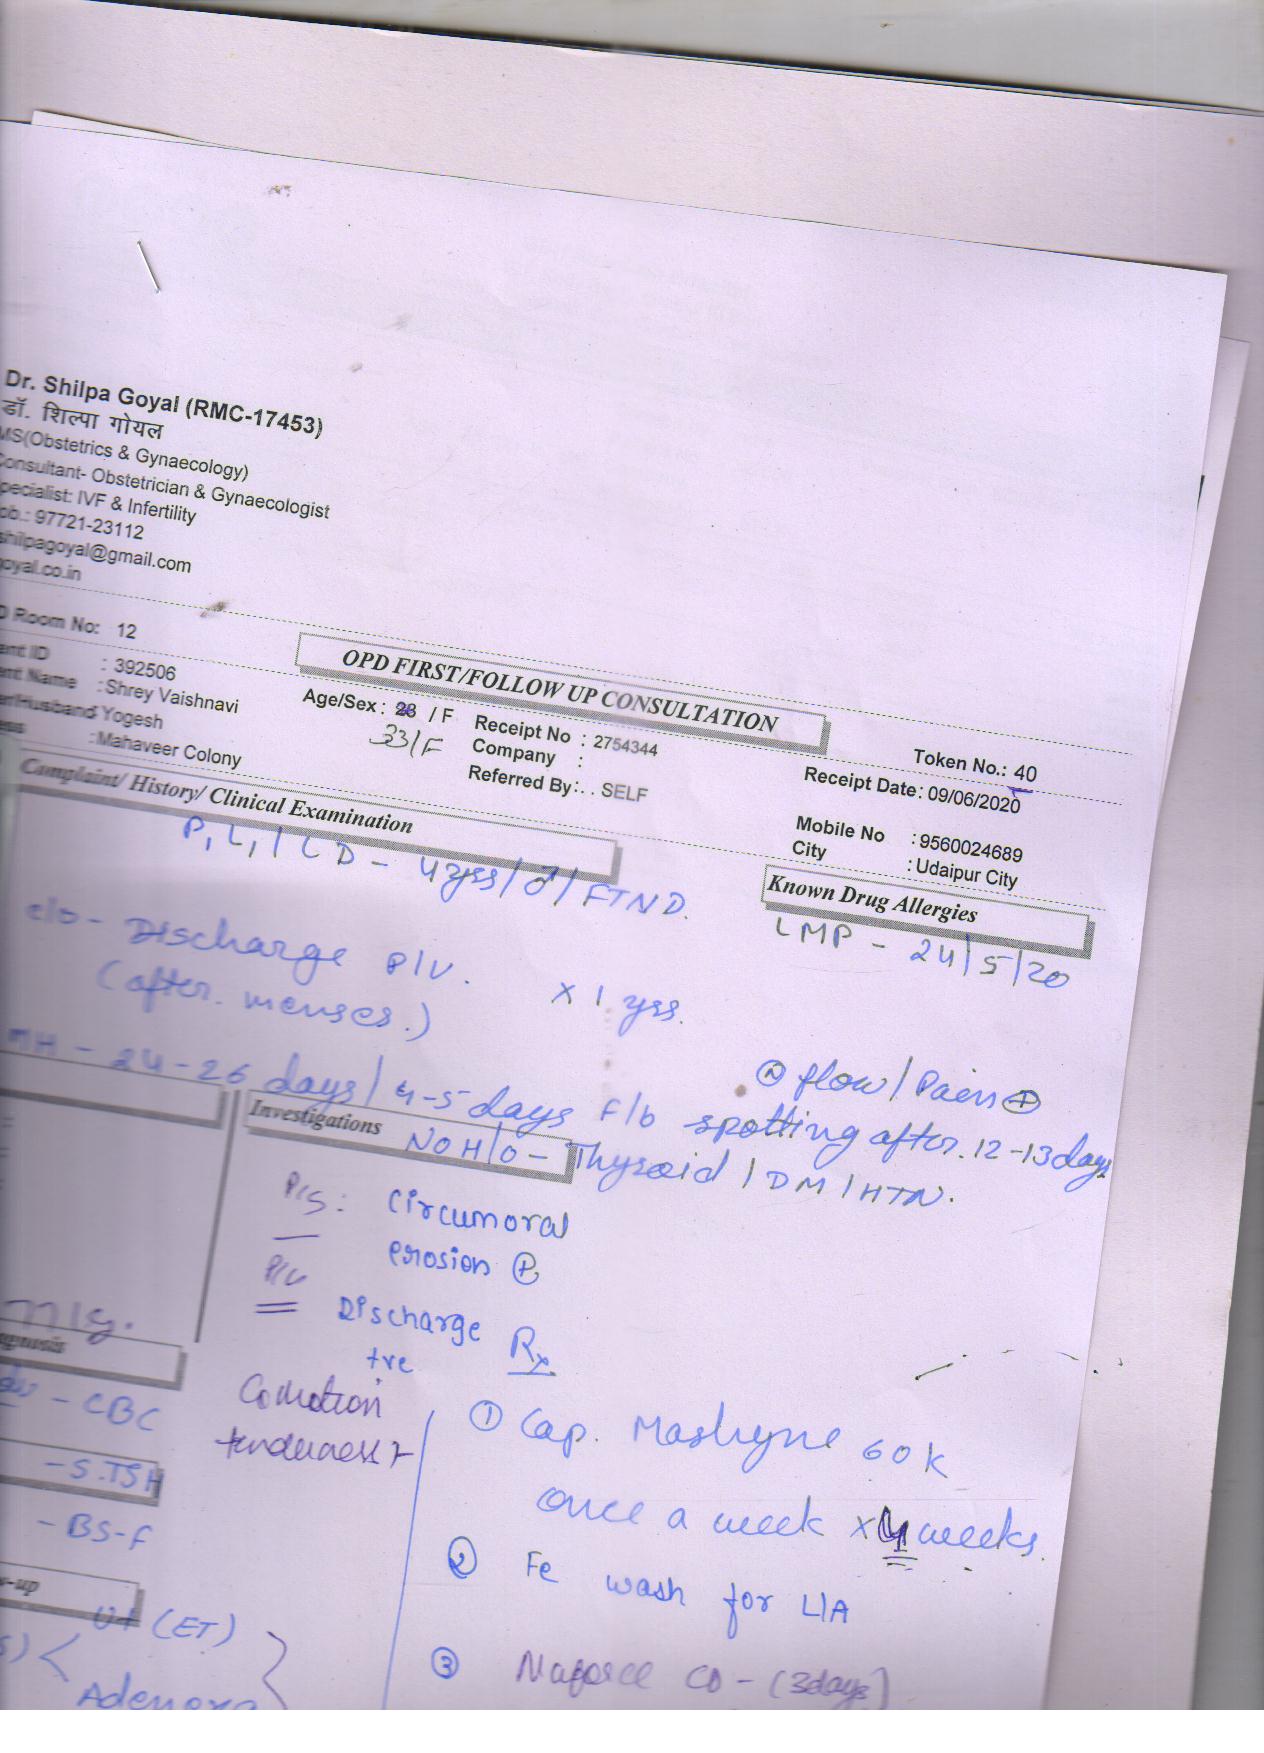 Dr. Shilpa Goyal (RMC-17453)
डॉ. शिल्पा गोयल
MS(Obstetrics & Gynaecology)
Consultant- Obstetrician & Gynaecologist
pecialist: IVF & Infertility
ob.: 97721-23112
shilpagoyal@gmail.com
goyal.co.in
D Room No: 12
OPD FIRST/FOLLOW UP CONSULTATION
Token No.: 40
ent ID : 392506
ent Name : Shrey Vaishnavi
er/Husband: Yogesh
ess : Mahaveer Colony
Age/Sex : 28 / F
33/F
Receipt No : 2754344
Company :
Referred By: . . SELF
Receipt Date: 09/06/2020
Mobile No : 9560024689
City : Udaipur City
Complaint/ History/ Clinical Examination
Known Drug Allergies
P1 L1 / LCD - 4 yrs / ♂ / FTND.
LMP - 24/5/20
c/o - Discharge P/V.
(after menses.)
x 1 yrs.
MH - 24-26 days / 4-5 days F/b spotting after 12-13 days
Ⓝ flow / Pain ⊕
Investigations
NO H/O - Thyroid / DM / HTN.
P/S: Circumoral
erosion ⊕
P/V Discharge
+ve
tenderness +
gnosis
- CBC
- S.TSH
- BS-F
w-up
(ET)
Rx
① Cap. 60K
once a week x 4 weeks.
② Fe wash for L/A
③ CD - (3days)